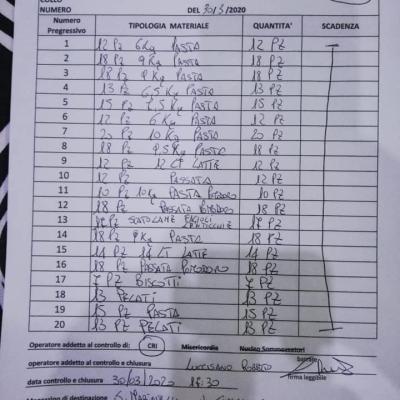 COLLO
NUMERO DEL 30/3/2020
Numero Progressivo TIPOLOGIA MATERIALE QUANTITA' SCADENZA
1 12 PZ 6 Kg PASTA 12 PZ
2 18 PZ 9 Kg PASTA 18 PZ
3 18 PZ 9 Kg PASTA 18 PZ
4 13 PZ 6,5 Kg PASTA 13 PZ
5 15 PZ 7,5 Kg PASTA 15 PZ
6 12 PZ 6 Kg PASTA 12 PZ
7 20 PZ 10 Kg PASTA 20 PZ
8 18 PZ 9,5 Kg PASTA 18 PZ
9 12 PZ 12 LT LATTE 12 PZ
10 12 PZ PASSATA 12 PZ
11 10 PZ 10 Kg PASTA POMODORO 10 PZ
12 18 PZ PASSATA POMODORO 18 PZ
13 17 PZ SCATOLAME FAGIOLI LENTICCHIE 17 PZ
14 18 PZ 9 Kg PASTA 18 PZ
15 14 PZ 14 LT LATTE 14 PZ
16 18 PZ PASSATA POMODORO 18 PZ
17 7 PZ BISCOTTI 7 PZ
18 13 PELATI 13 PZ
19 15 PZ PASTA 15 PZ
20 13 PZ PELATI 13 PZ
Operatore addetto al controllo di: CRI Misericordia Nucleo Sommozzatori
operatore addetto al controllo e chiusura ROBERTO
firma leggibile
data controllo e chiusura 30/03/2020 17:30
di destinazione